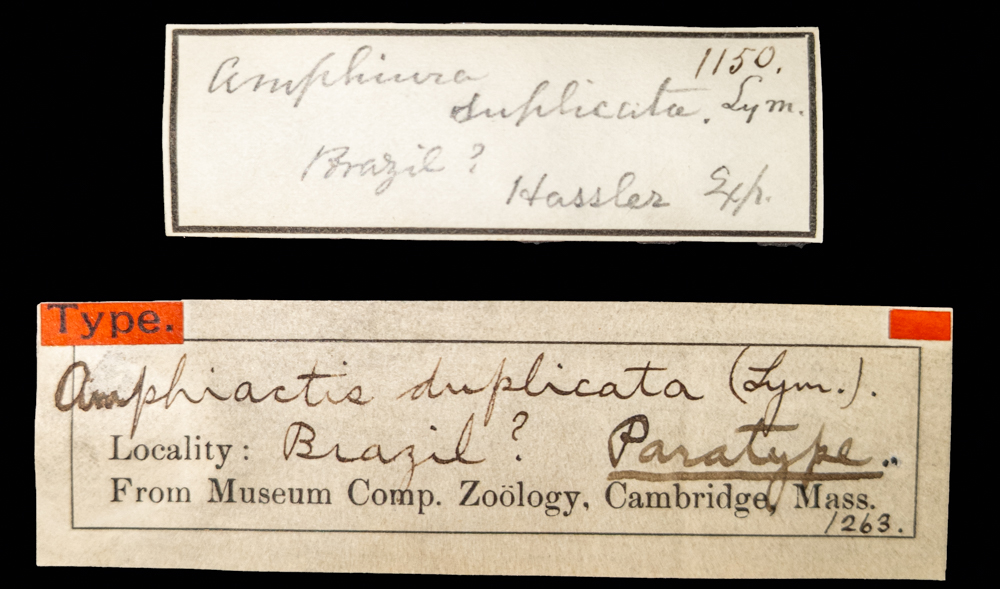 1150.
Amphiura
duplicata. Lym.
Brazil?
Hassler Exp.
Type.
Amphiactis duplicata (Lym.).
Locality: Brazil? Paratype.
From Museum Comp. Zoölogy, Cambridge, Mass.
1263.